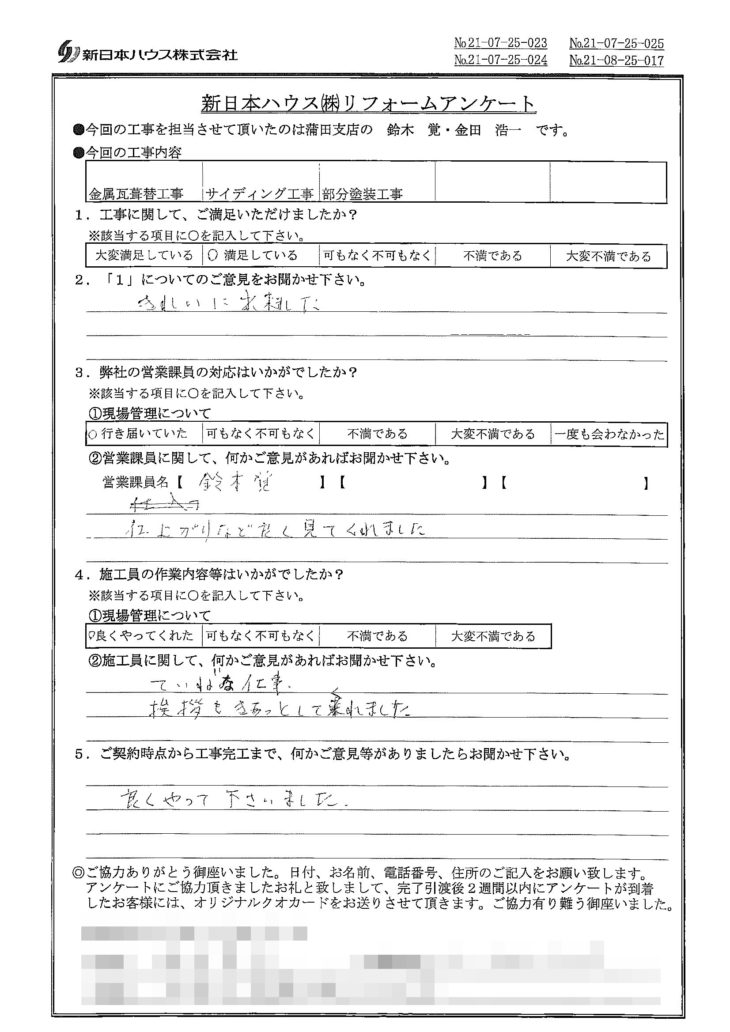 新日本ハウス株式会社
No.21-07-25-023 No.21-07-25-025
No.21-07-25-024 No.21-08-25-017
新日本ハウス㈱リフォームアンケート
●今回の工事を担当させて頂いたのは蒲田支店の 鈴木 覚・金田 浩一 です。
●今回の工事内容
金属瓦葺替工事 サイディング工事 部分塗装工事
1．工事に関して、ご満足いただけましたか？
※該当する項目に○を記入して下さい。
大変満足している ○ 満足している 可もなく不可もなく 不満である 大変不満である
2．「1」についてのご意見をお聞かせ下さい。
きれいに出来ました
3．弊社の営業課員の対応はいかがでしたか？
※該当する項目に○を記入して下さい。
①現場管理について
○行き届いていた 可もなく不可もなく 不満である 大変不満である 一度も会わなかった
②営業課員に関して、何かご意見があればお聞かせ下さい。
営業課員名【 鈴木覚 】【 】【 】
仕上がりなど良く見てくれました
4．施工員の作業内容等はいかがでしたか？
※該当する項目に○を記入して下さい。
①現場管理について
○良くやってくれた 可もなく不可もなく 不満である 大変不満である
②施工員に関して、何かご意見があればお聞かせ下さい。
ていねいな仕事、
挨拶もきちっとしてくれました
5．ご契約時点から工事完工まで、何かご意見等がありましたらお聞かせ下さい。
良くやって下さいました．
◎ご協力ありがとう御座いました。日付、お名前、電話番号、住所のご記入をお願い致します。
アンケートにご協力頂きましたお礼と致しまして、完了引渡後２週間以内にアンケートが到着
したお客様には、オリジナルクオカードをお送りさせて頂きます。ご協力有り難う御座いました。